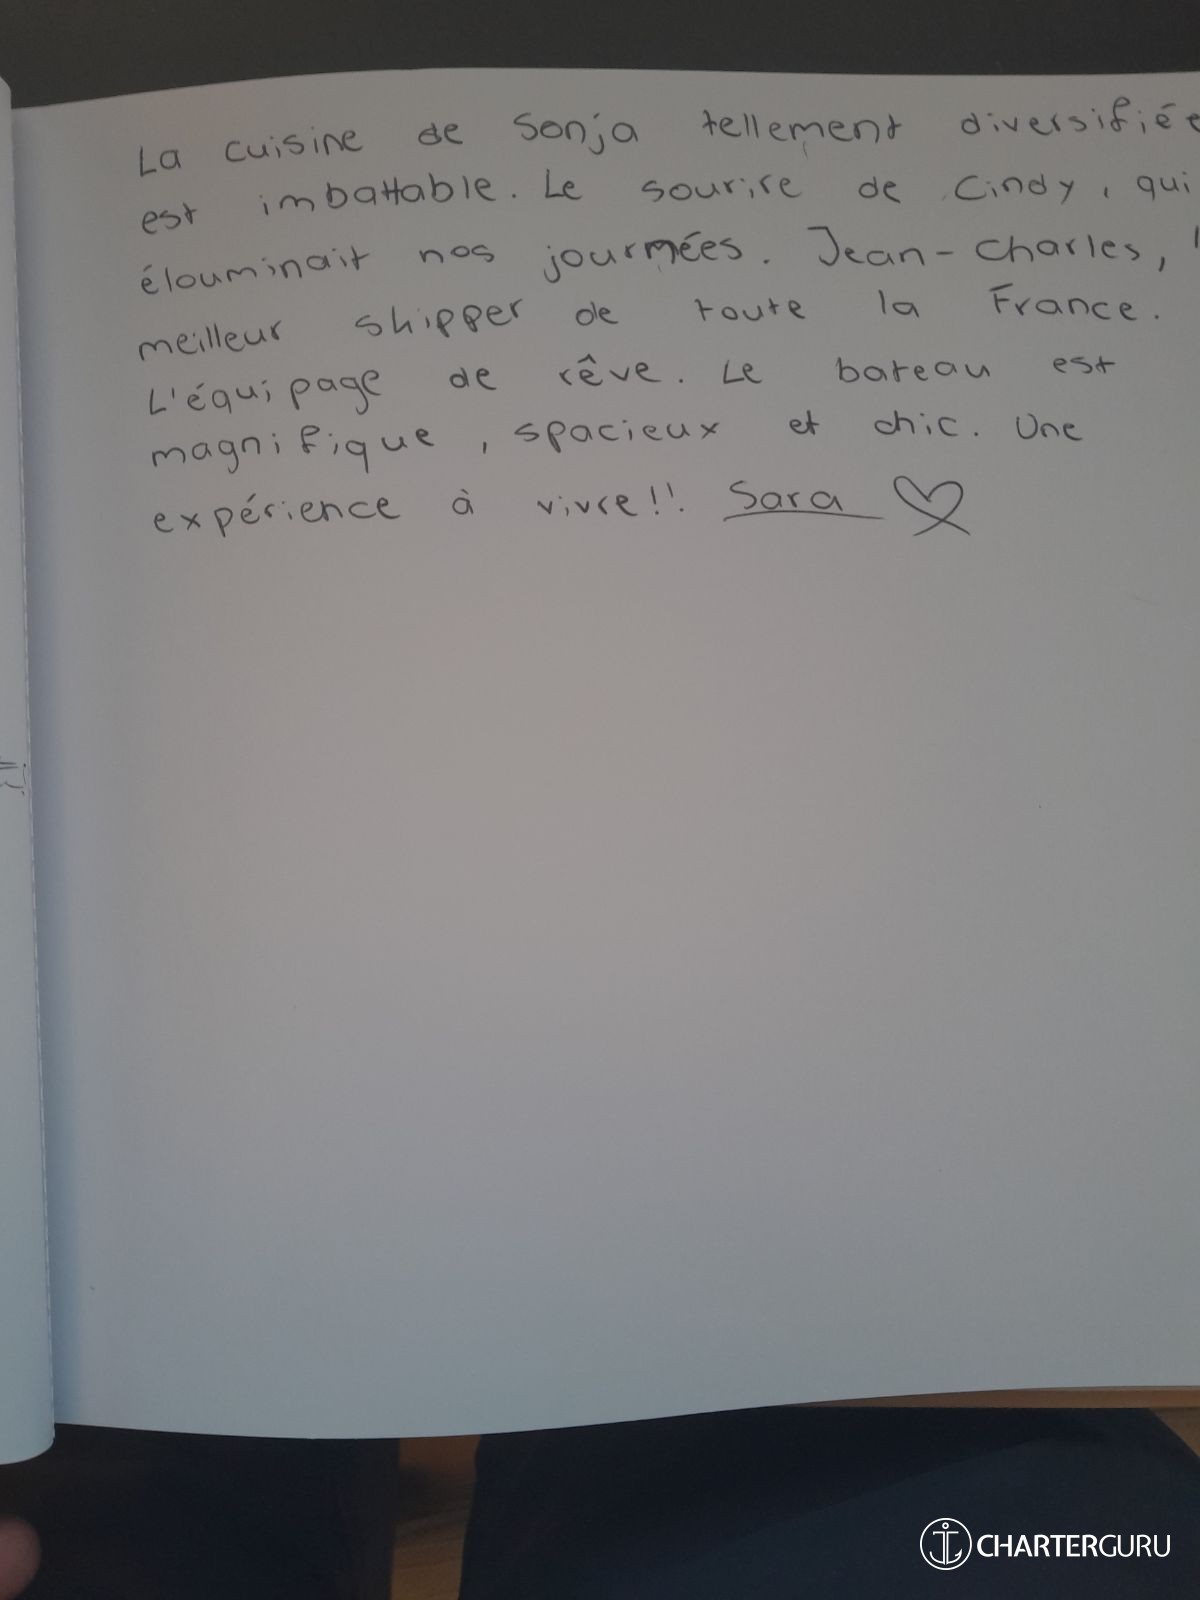 La cuisine de Sonja tellement diversifiée
est imbattable. Le sourire de Cindy, qui
élouminait nos journées. Jean-Charles, l
meilleur skipper de toute la France.
L'équipage de rêve. Le bateau est
magnifique, spacieux et chic. Une
expérience à vivre!! Sara
CHARTERGURU